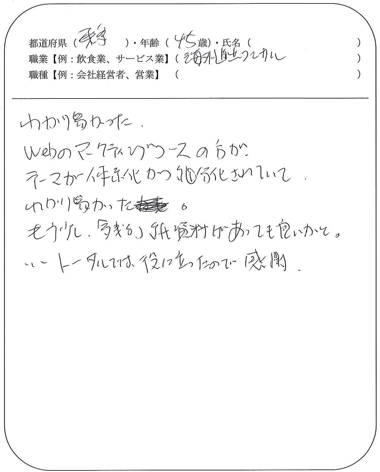 都道府県（東京）・年齢（45歳）・氏名（　　）
職業【例：飲食業、サービス業】（
職種【例：会社経営者、営業】（　　）
わかり易かった．
Webのマーケティングコースの方が、
テーマが体系化かつ細分化されていて
わかり易かった。
もう少し、「残る」紙資料があっても良いかと。
… トータルでは、役に立ったので感謝．